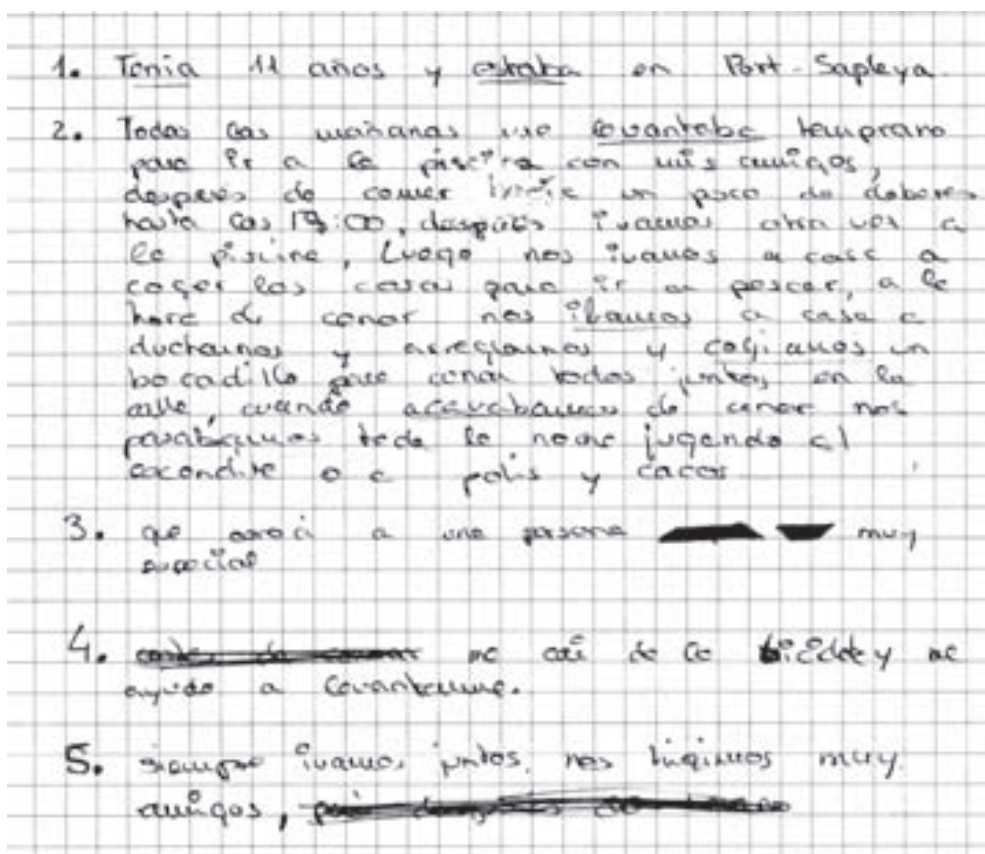 1. Tenia 11 años y estaba en Port-Sapleya.
2. Todas las mañanas me levantaba temprano
para ir a la piscina con mis amigos,
después de comer hacía un poco de deberes
hasta las, después ivamos otra vez a
la piscina, Luego nos ivamos a casa a
coger las cosas para ir a pescar, a la
hora de cenar nos ibamos a casa a
ducharnos y arreglarnos y cogiamos un
bocadillo para cenar todos juntos en la
calle, cuando acavabamos de cenar nos
pasabamos toda la noche jugando al
escondite o a polis y cacos
3. que conoci a una persona muy
especial
4. me caí de la bicicleta y me
ayudo a levantarme.
5. siempre ivamos juntos, nos hicimos muy
amigos,